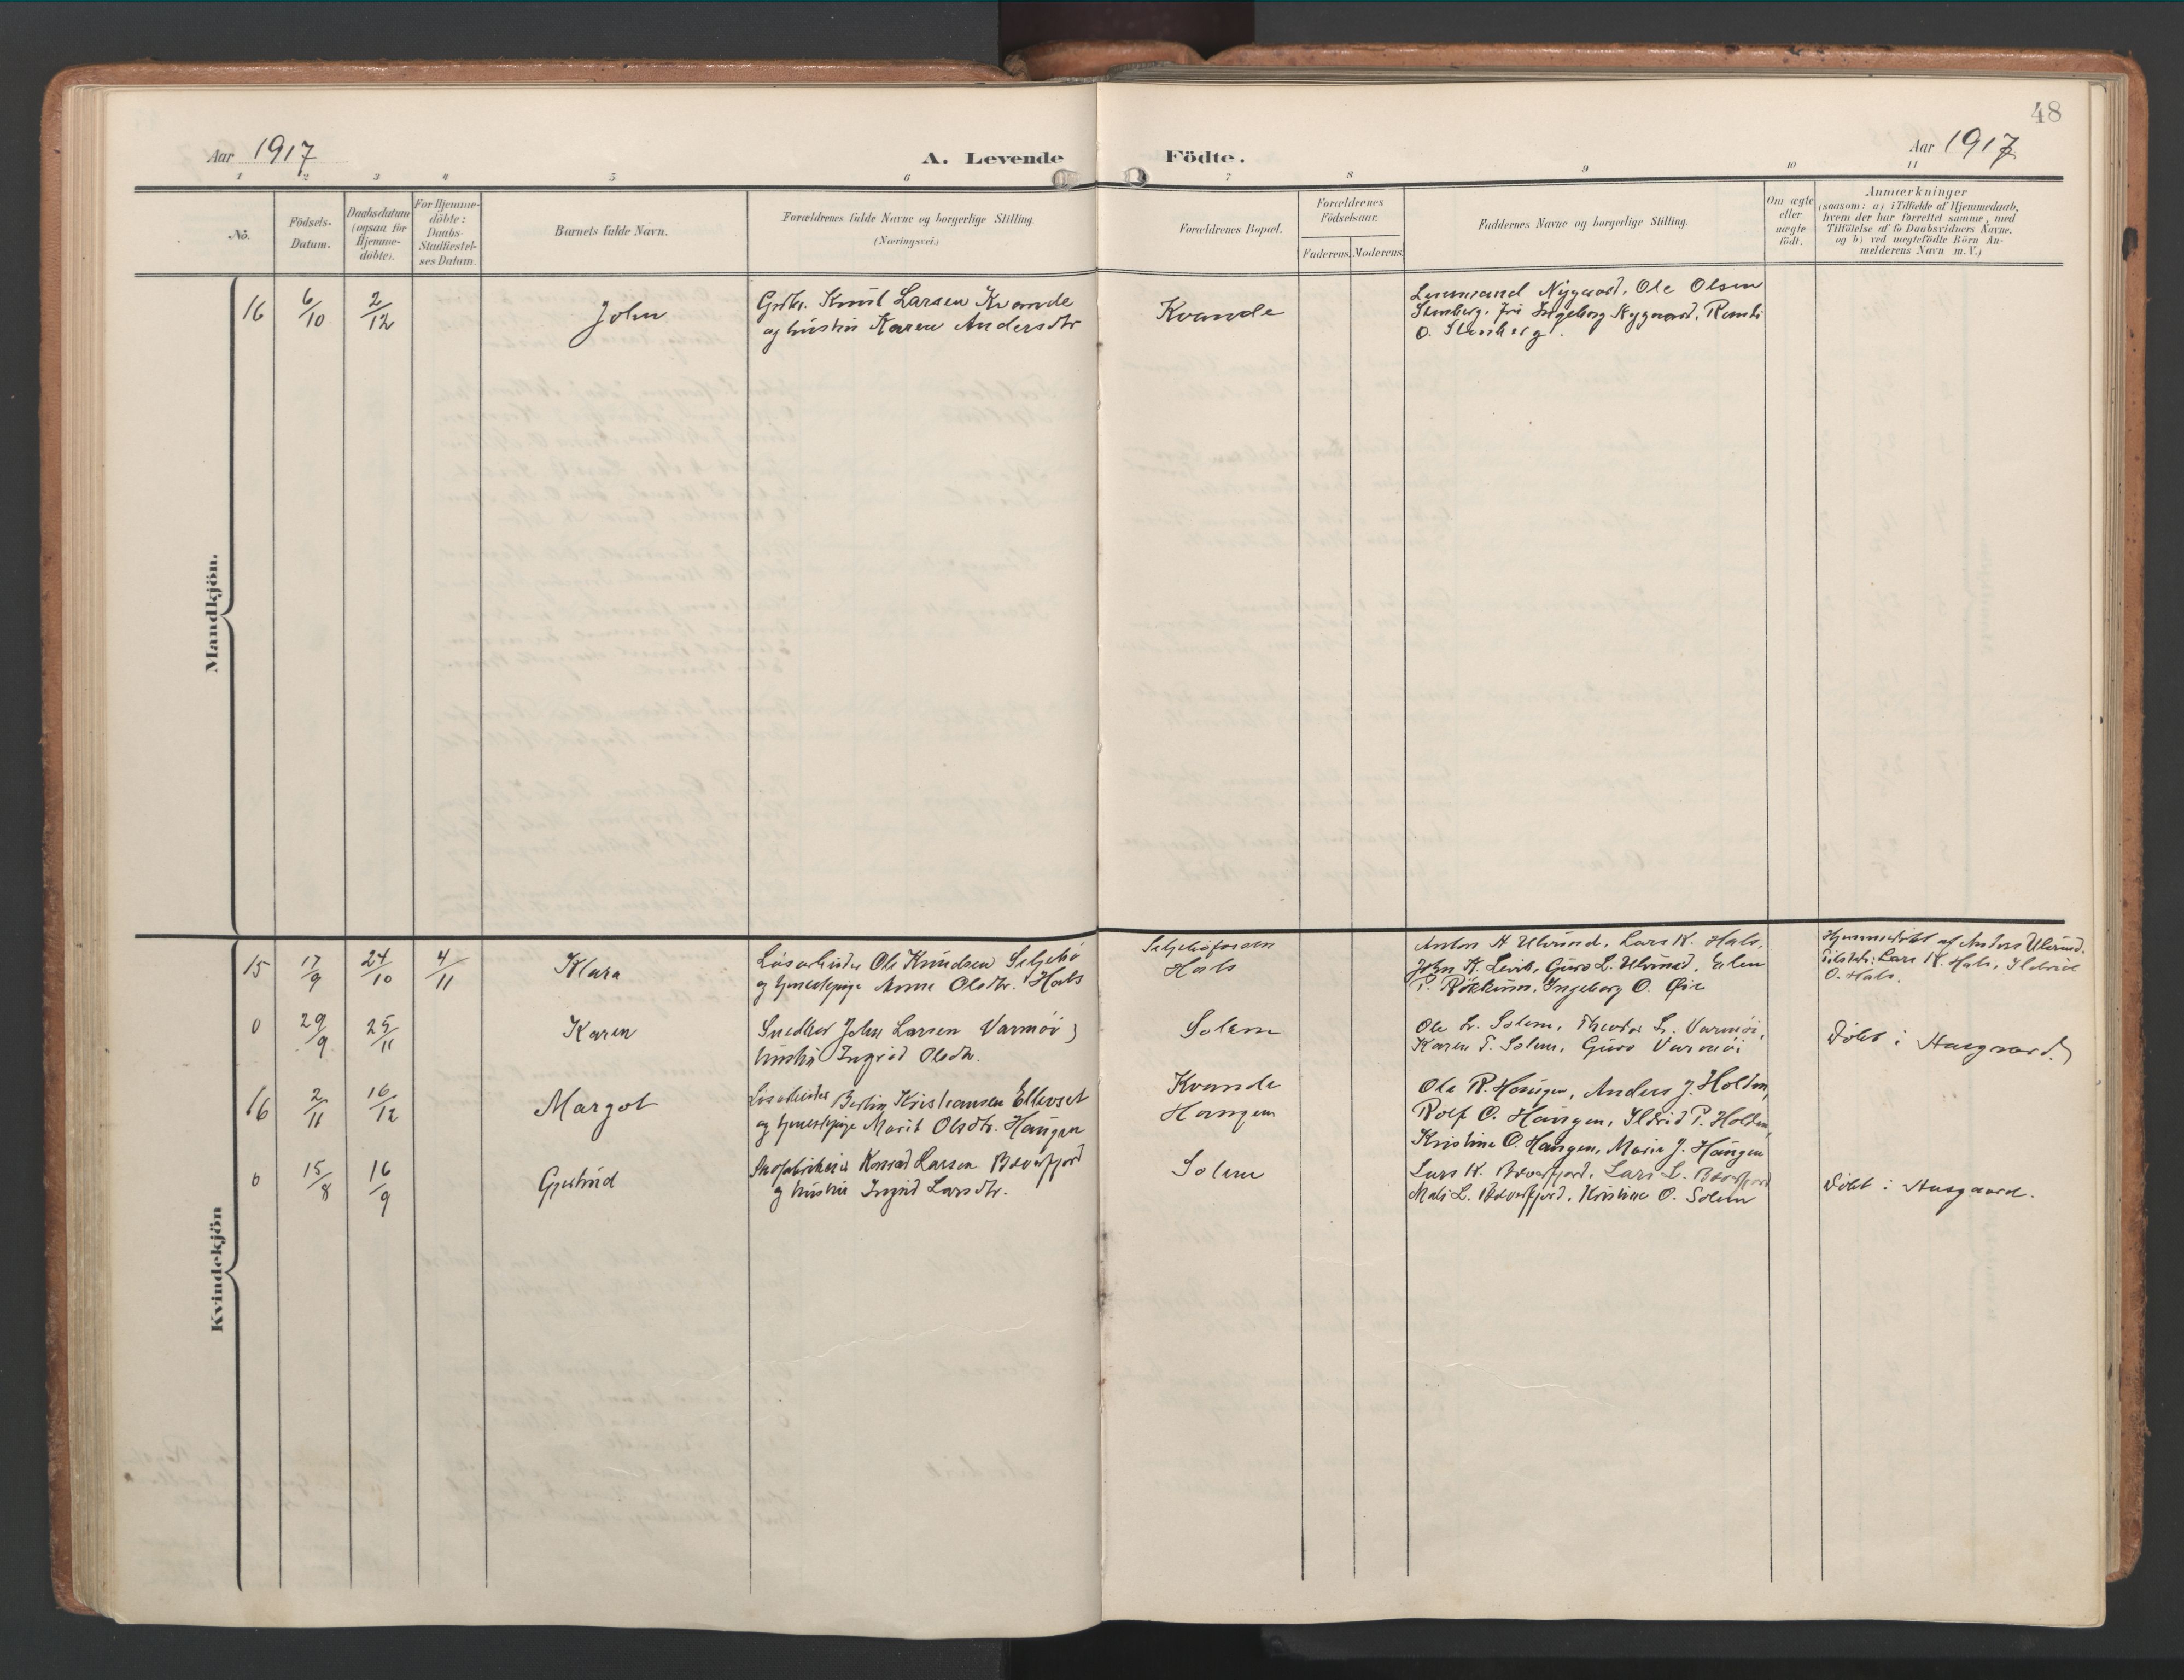 48
Aar 1917
A. Levende Födte.
Aar 1917
1 2 3 4 5 6 7 8 9 10 11
No.
Födsels-
Datum.
Daabsdatum
(ogsaa for
Hjemme-
döbte).
For Hjemme-
döbte:
Daabs-
Stadfæstel-
ses Datum.
Barnets fulde Navn.
Forældrenes fulde Navne og borgerlige Stilling.
(Næringsvei.)
Forældrenes Bopæl.
Forældrenes
Födselsaar.
Faderens. Moderens.
Faddernes Navne og borgerlige Stilling.
Om ægte
eller
uægte
födt.
Anmærkninger
(saasom: a) i Tilfælde af Hjemmedaab,
hvem der har forrettet samme, med
Tilföielse af to Daabsvidners Navne,
og b) ved uægtefödte Börn An-
melderens Navn m. V.)
Mandkjön.
16 6/10 2/12 John
Grdbr. Knut Larsen Kvande
og hustru Karen Andersdtr
Kvande
Lensmand Nygaard, Ole Olsen
Stenberg, fru Ingeborg Nygaard,
O. Stenberg.
Kvindekjön
15 17/9 24/10 4/11 Klara
Lösarbeider Ole Knudsen Seljebö
og tjenestepige Anne Olsdtr. Hals
Hals
Anton A Ulvund, Lars K. Hals,
John K. Levik, Guro L. Ulvund, Elen
P. Rökkum, Ingeborg O. Öie
Hjemmedöbt af Anders Ulvund.
Lars K. Hals, Ildrid
O. Hals.
0 29/9 25/11 Karen
Snedker John Larsen Varmöi
hustru Ingrid Olsdtr.
Solem
Ole L. Solem, Theodor L. Varmöi,
Karen T. Solem, Guro Varmöi
Döbt i Aasgaard.
16 2/11 16/12 Margot
Lösarbeider Bertin Kristiansen Ellevset
og tjenestepige Marit Olsdtr. Haugen
Kvande
Haugen
Ole R. Haugen, Anders J. Holden,
Rolf O. Haugen, Ildrid P. Holden,
Kristine O. Haugen, Marie J. Haugen
0 15/8 16/9 Gjertrud
Konrad Larsen Bæverfjord
og hustru Ingrid Larsdtr.
Solem
Lars K. Bæverfjord, Lars L. Bæverfjord
Mali L. Bæverfjord, Kristine O. Solem
Döbt i Aasgaard.